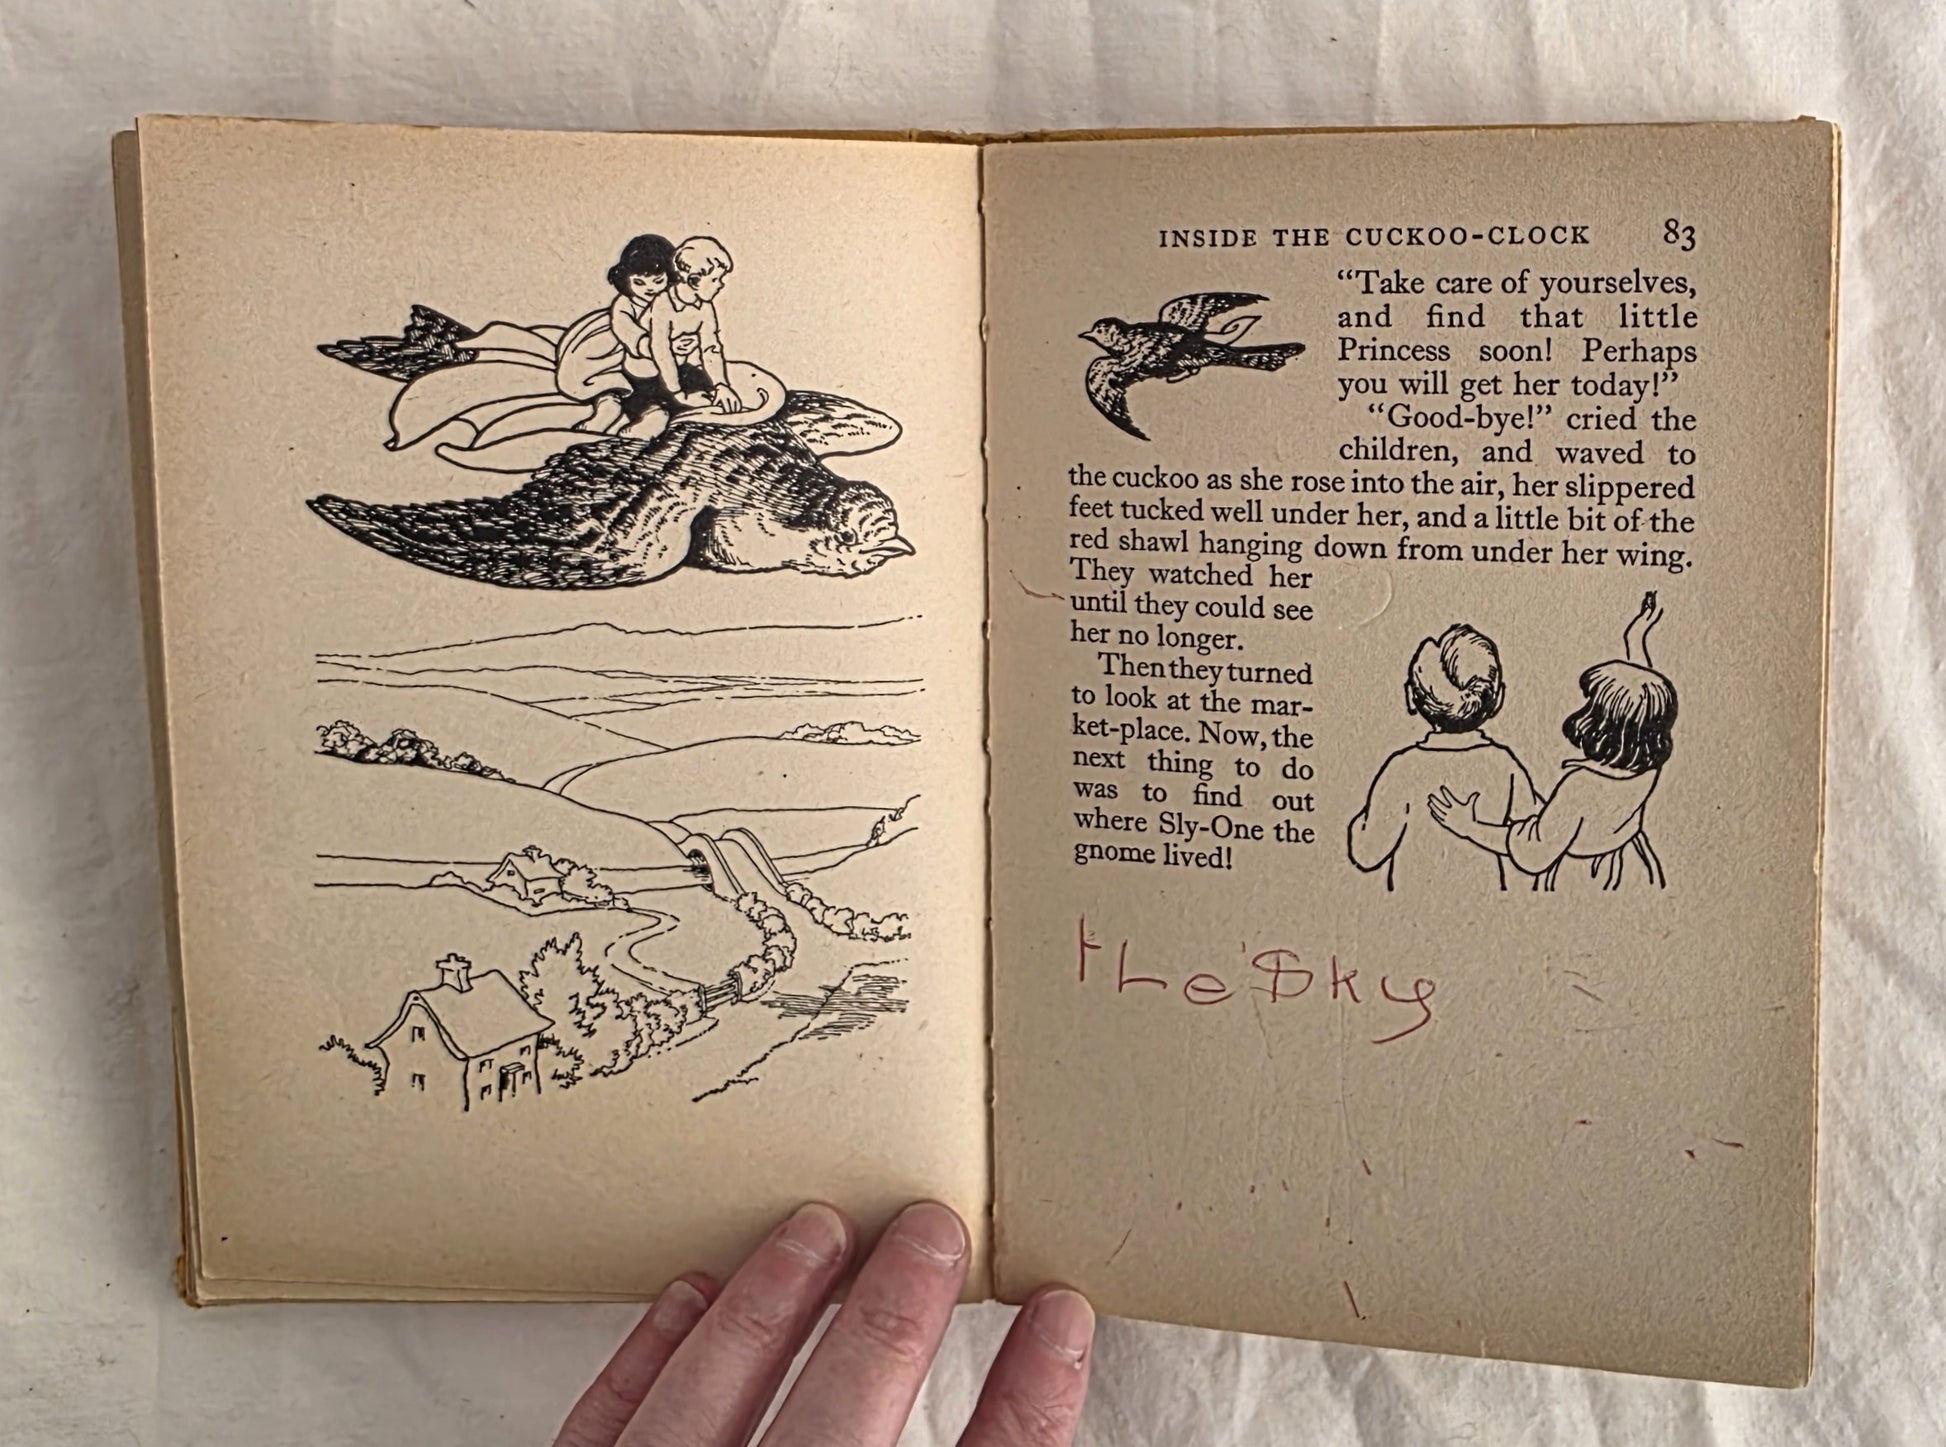 INSIDE THE CUCKOO-CLOCK 83
“Take care of yourselves,
and find that little
Princess soon! Perhaps
you will get her today!”
“Good-bye!” cried the
children, and waved to
the cuckoo as she rose into the air, her slippered
feet tucked well under her, and a little bit of the
red shawl hanging down from under her wing.
They watched her
until they could see
her no longer.
Then they turned
to look at the mar-
ket-place. Now, the
next thing to do
was to find out
where Sly-One the
gnome lived!
the Sky